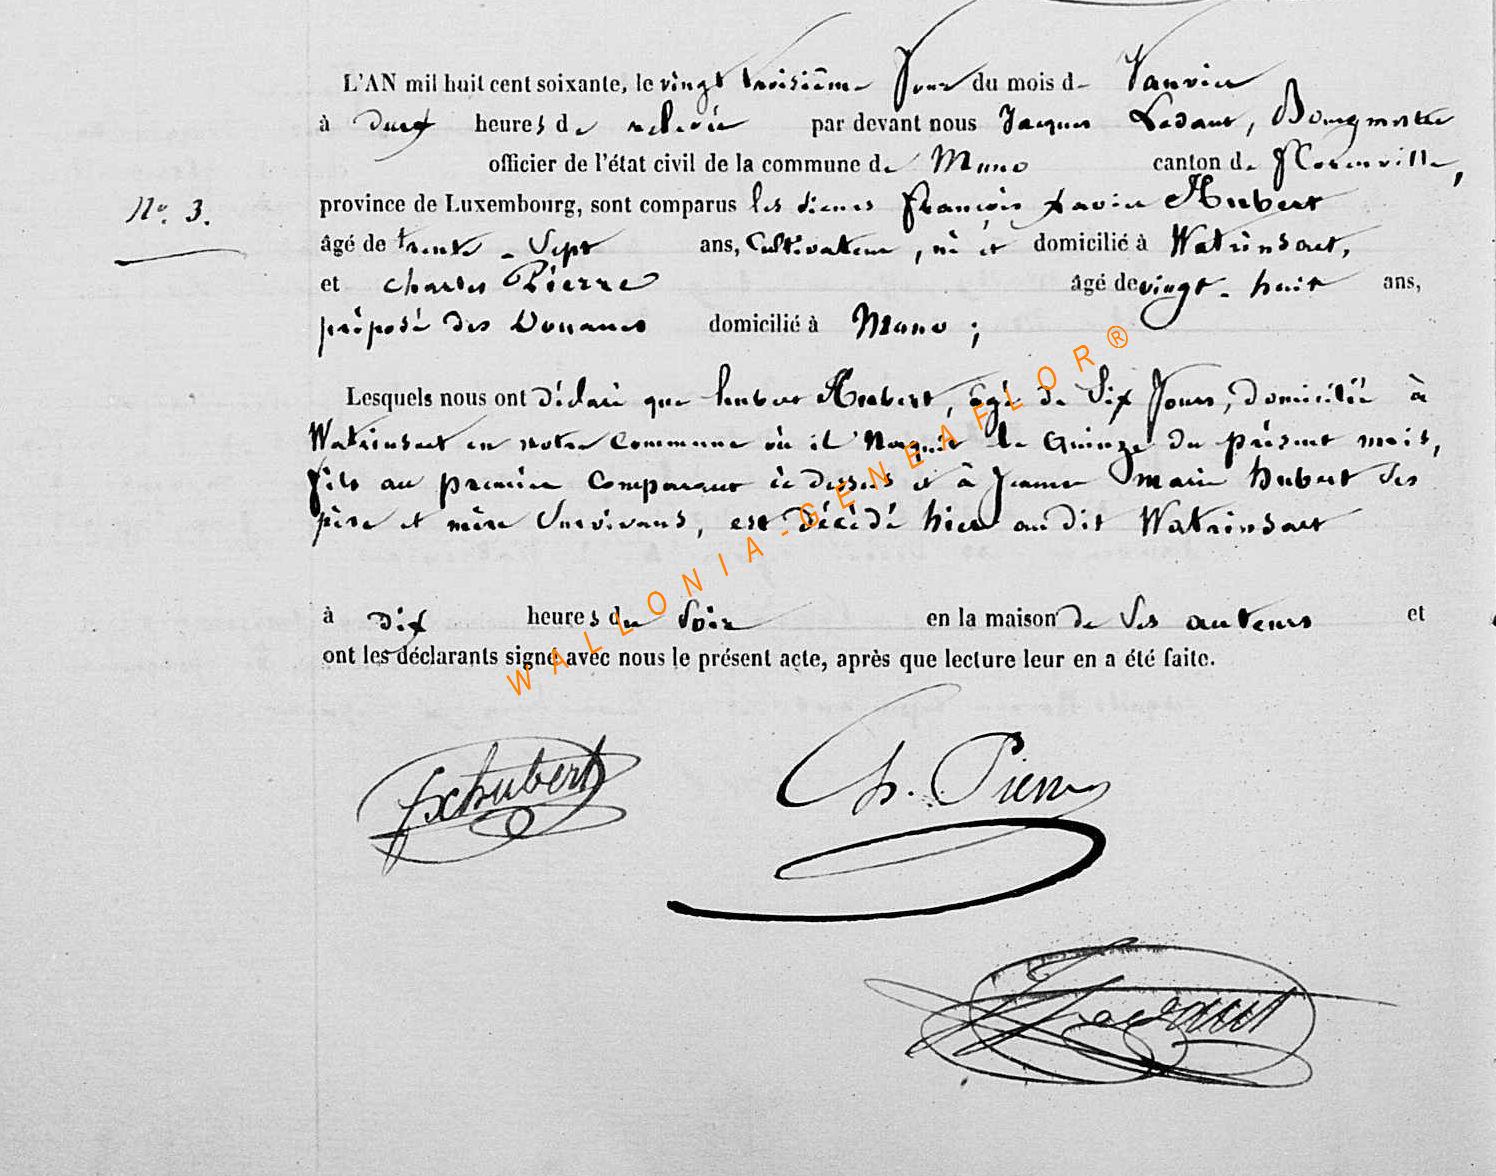 L'AN mil huit cent soixante, le vingt troisième Jour du mois de Janvier
à deux heures de relevée par devant nous Jacques Ledant, Bourgmestre
officier de l'état civil de la commune de Muno canton de Florenville,
N°. 3.
province de Luxembourg, sont comparus les sieurs François Xavier Hubert
âgé de trente-Sept ans, Cultivateur, né et domicilié à Watrinsart,
et Charles Pierre âgé de vingt-huit ans,
préposé des Douanes domicilié à Muno ;
Lesquels nous ont déclaré que hubert Hubert, âgé de Six Jours, domicilié à
Watrinsart en notre Commune où il Naquit le Quinze du présent mois,
fils au premier Comparant ci dessus et à Jeanne Marie hubert ses
père et mère Survivans, est Décédé hier au dit Watrinsart
à Dix heures du Soir en la maison de Ses auteurs et
ont les déclarants signé avec nous le présent acte, après que lecture leur en a été faite.
WALLONIA-GENEAFLOR®
fxhubert
Ch. Pierre
JLedant